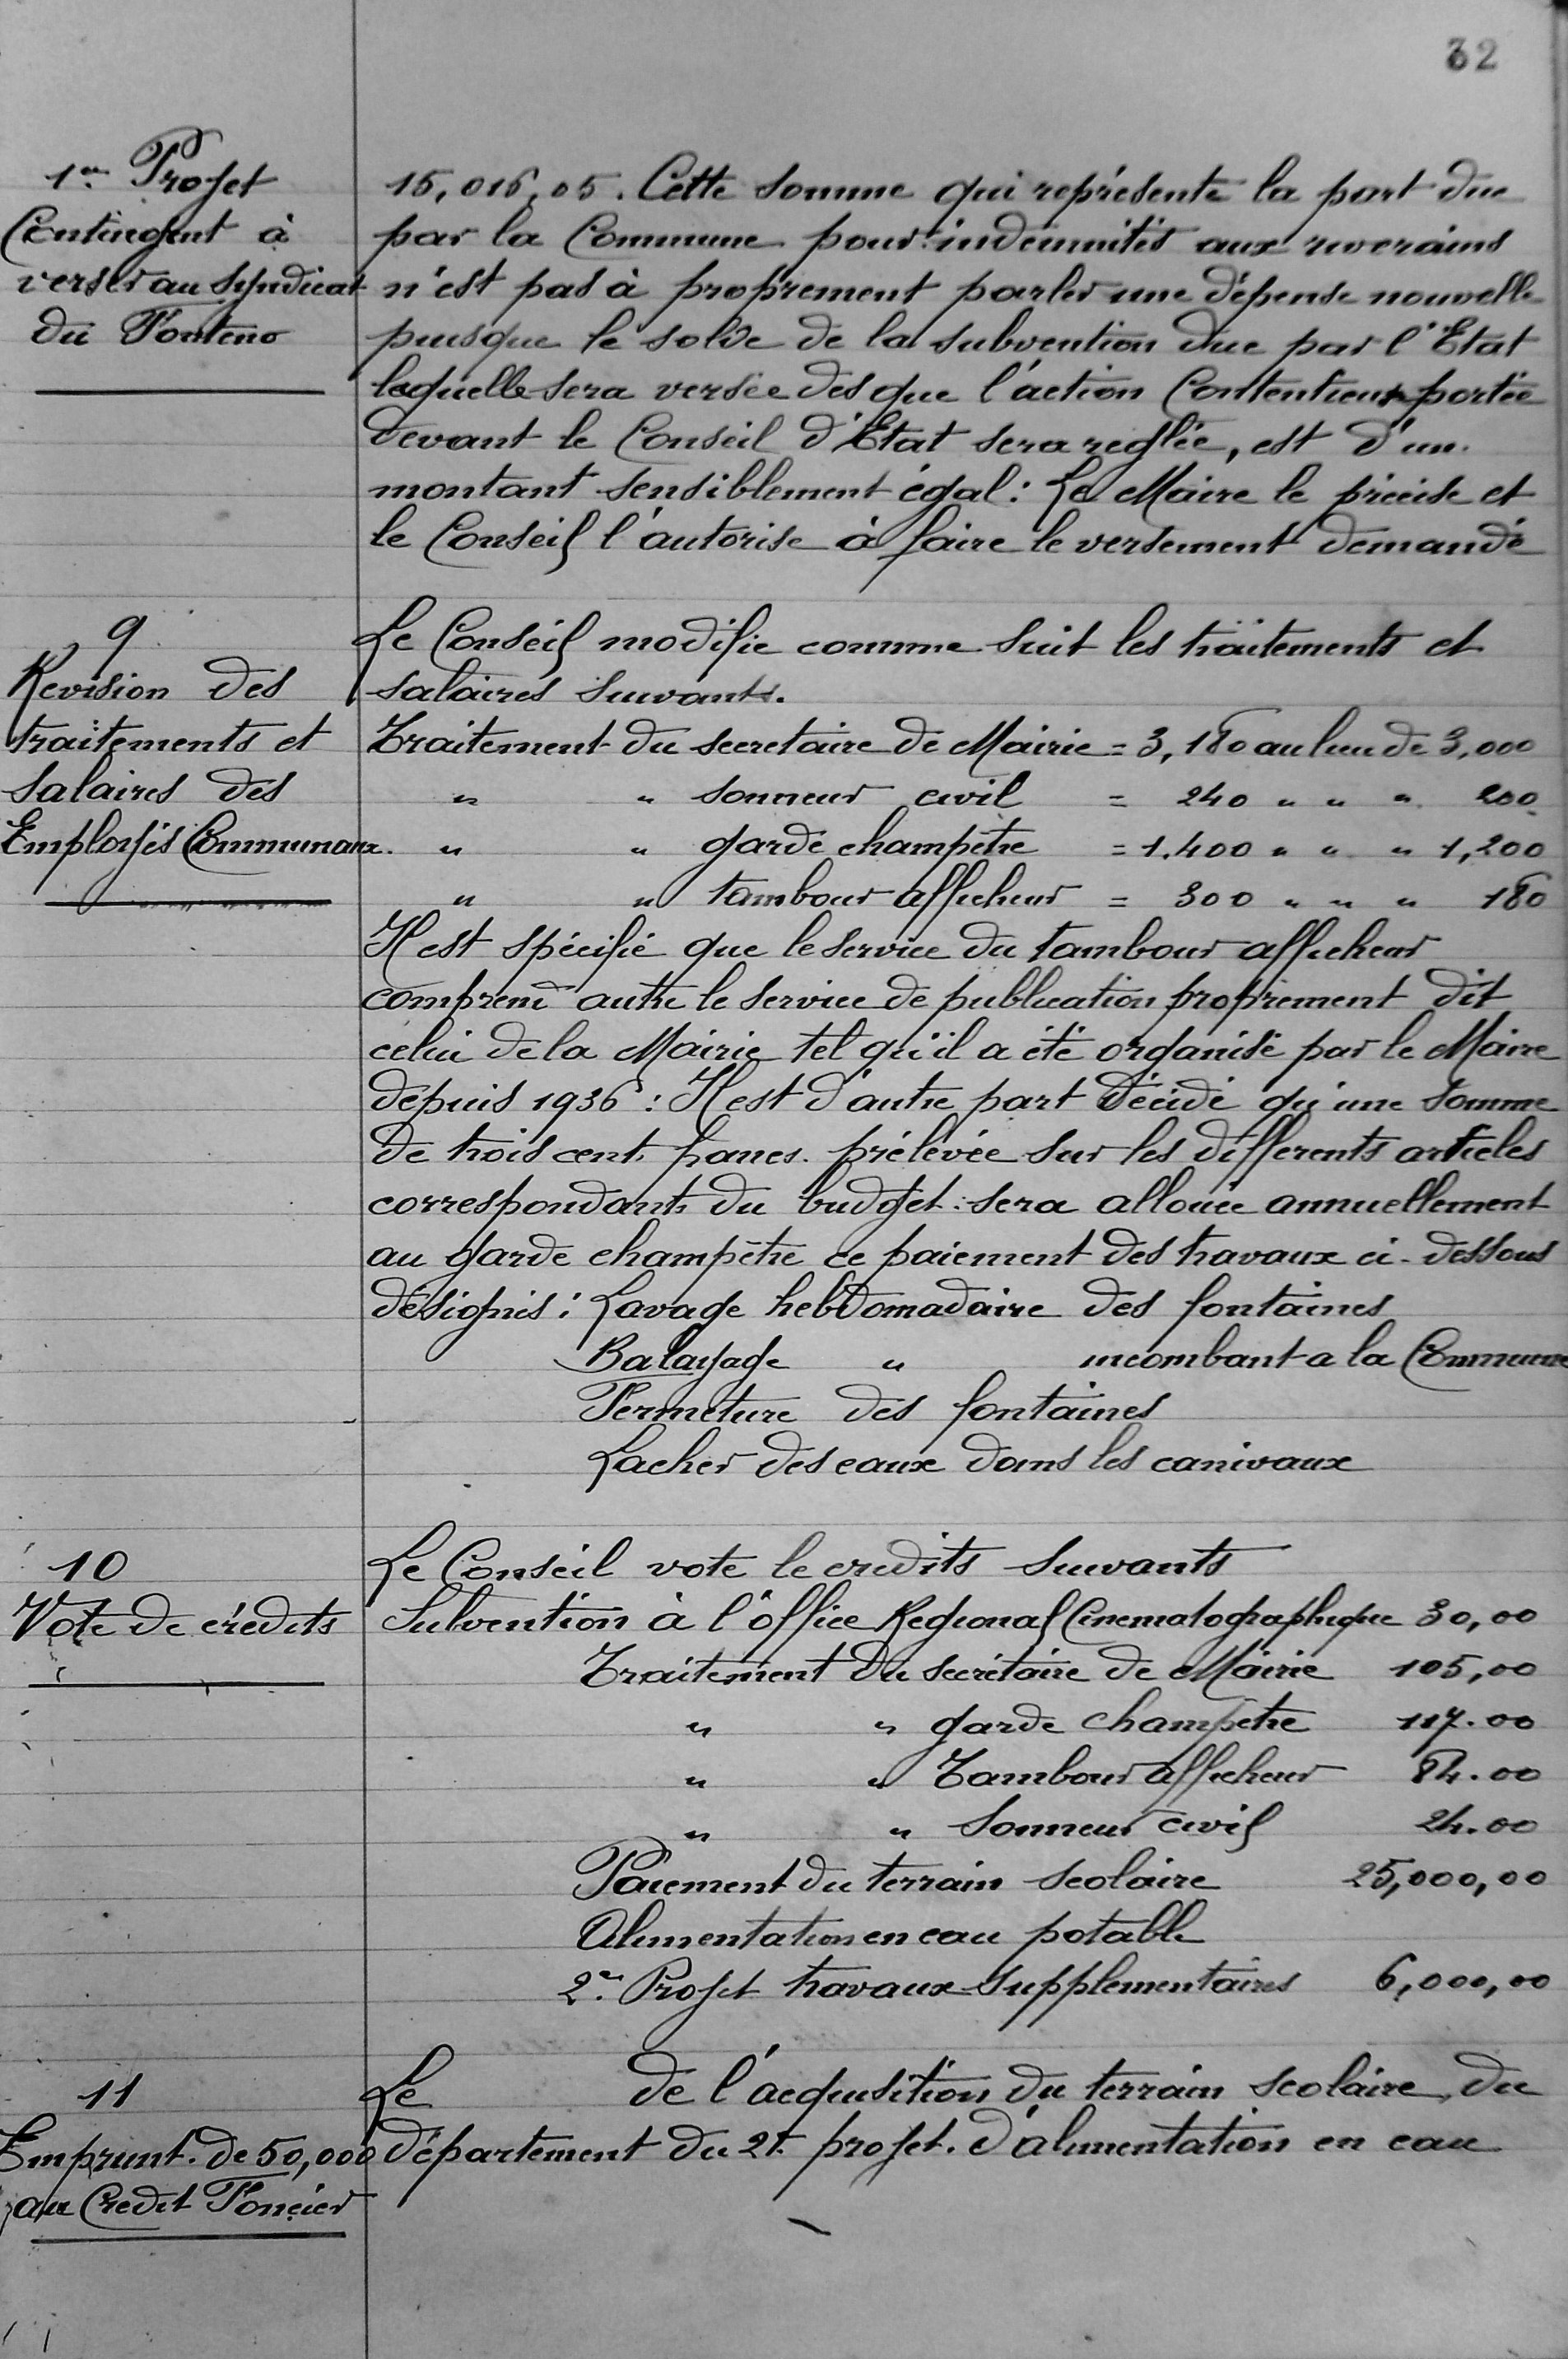 32
1er Projet
Contingent à
verser au Syndicat
du Fonteno
15,016,05. Cette somme qui représente la part due
par la Commune pour indemnités aux riverains
n'est pas à proprement parler une dépense nouvelle
puisque le solde de la subvention due par l'Etat
laquelle sera versée dès que l'action Contentieux portée
devant le Conseil d'Etat sera reglée, est d'un
montant sensiblement égal : Le Maire le précise et
le Conseil l'autorise à faire le versement demandé
9
Revision des
traitements et
salaires des
Employés Communaux.
Le Conseil modifie comme suit les traitements et
salaires suivants.
Traitement du secretaire de Mairie = 3,180 au lieu de 3,000
" " sonneur civil = 240 " " " 200
" " garde champêtre = 1.400 " " " 1,200
" " tambour afficheur = 300 " " " 180
Il est spécifié que le service du tambour afficheur
comprend autre le service de publication proprement dit
celui de la Mairie tel qu'il a été organisé par le Maire
depuis 1936 : Il est d'autre part décidé qu'une somme
de trois cent francs. prélevée sur les différents articles
correspondants du budget : sera allouée annuellement
au garde champêtre ce paiement des travaux ci-dessous
désignés : Lavage hebdomadaire des fontaines
Balayage " incombant a la Commune
Fermeture des fontaines
Lacher des eaux dans les canivaux
10
Vote de crédits
Le Conseil vote le credits suivants
Subvention à l'office Regional Cinematographique 30,00
Traitement du secrétaire de Mairie 105,00
" " garde champetre 117.00
" " Tambour afficheur 84.00
" " Sonneur civil 24.00
Paiement du terrain scolaire 25,000,00
Alimentation en eau potable
2e Projet travaux supplementaires 6,000,00
11
Emprunt. de 50,000
au Credit Foncier
Le de l'acquisition du terrain scolaire, du
département du 2e projet. d'alimentation en eau